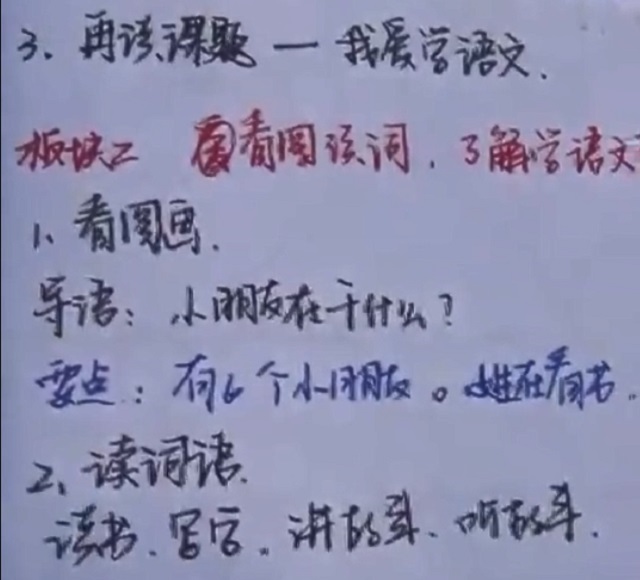 3、再读课题 — 我爱学语文.
板块二 看图读词, 了解学语文
1、看图画.
导语: 小朋友在干什么?
要点: 有6个小朋友。 她在看书。
2、读词语.
读书、写字。讲故事、听故事.